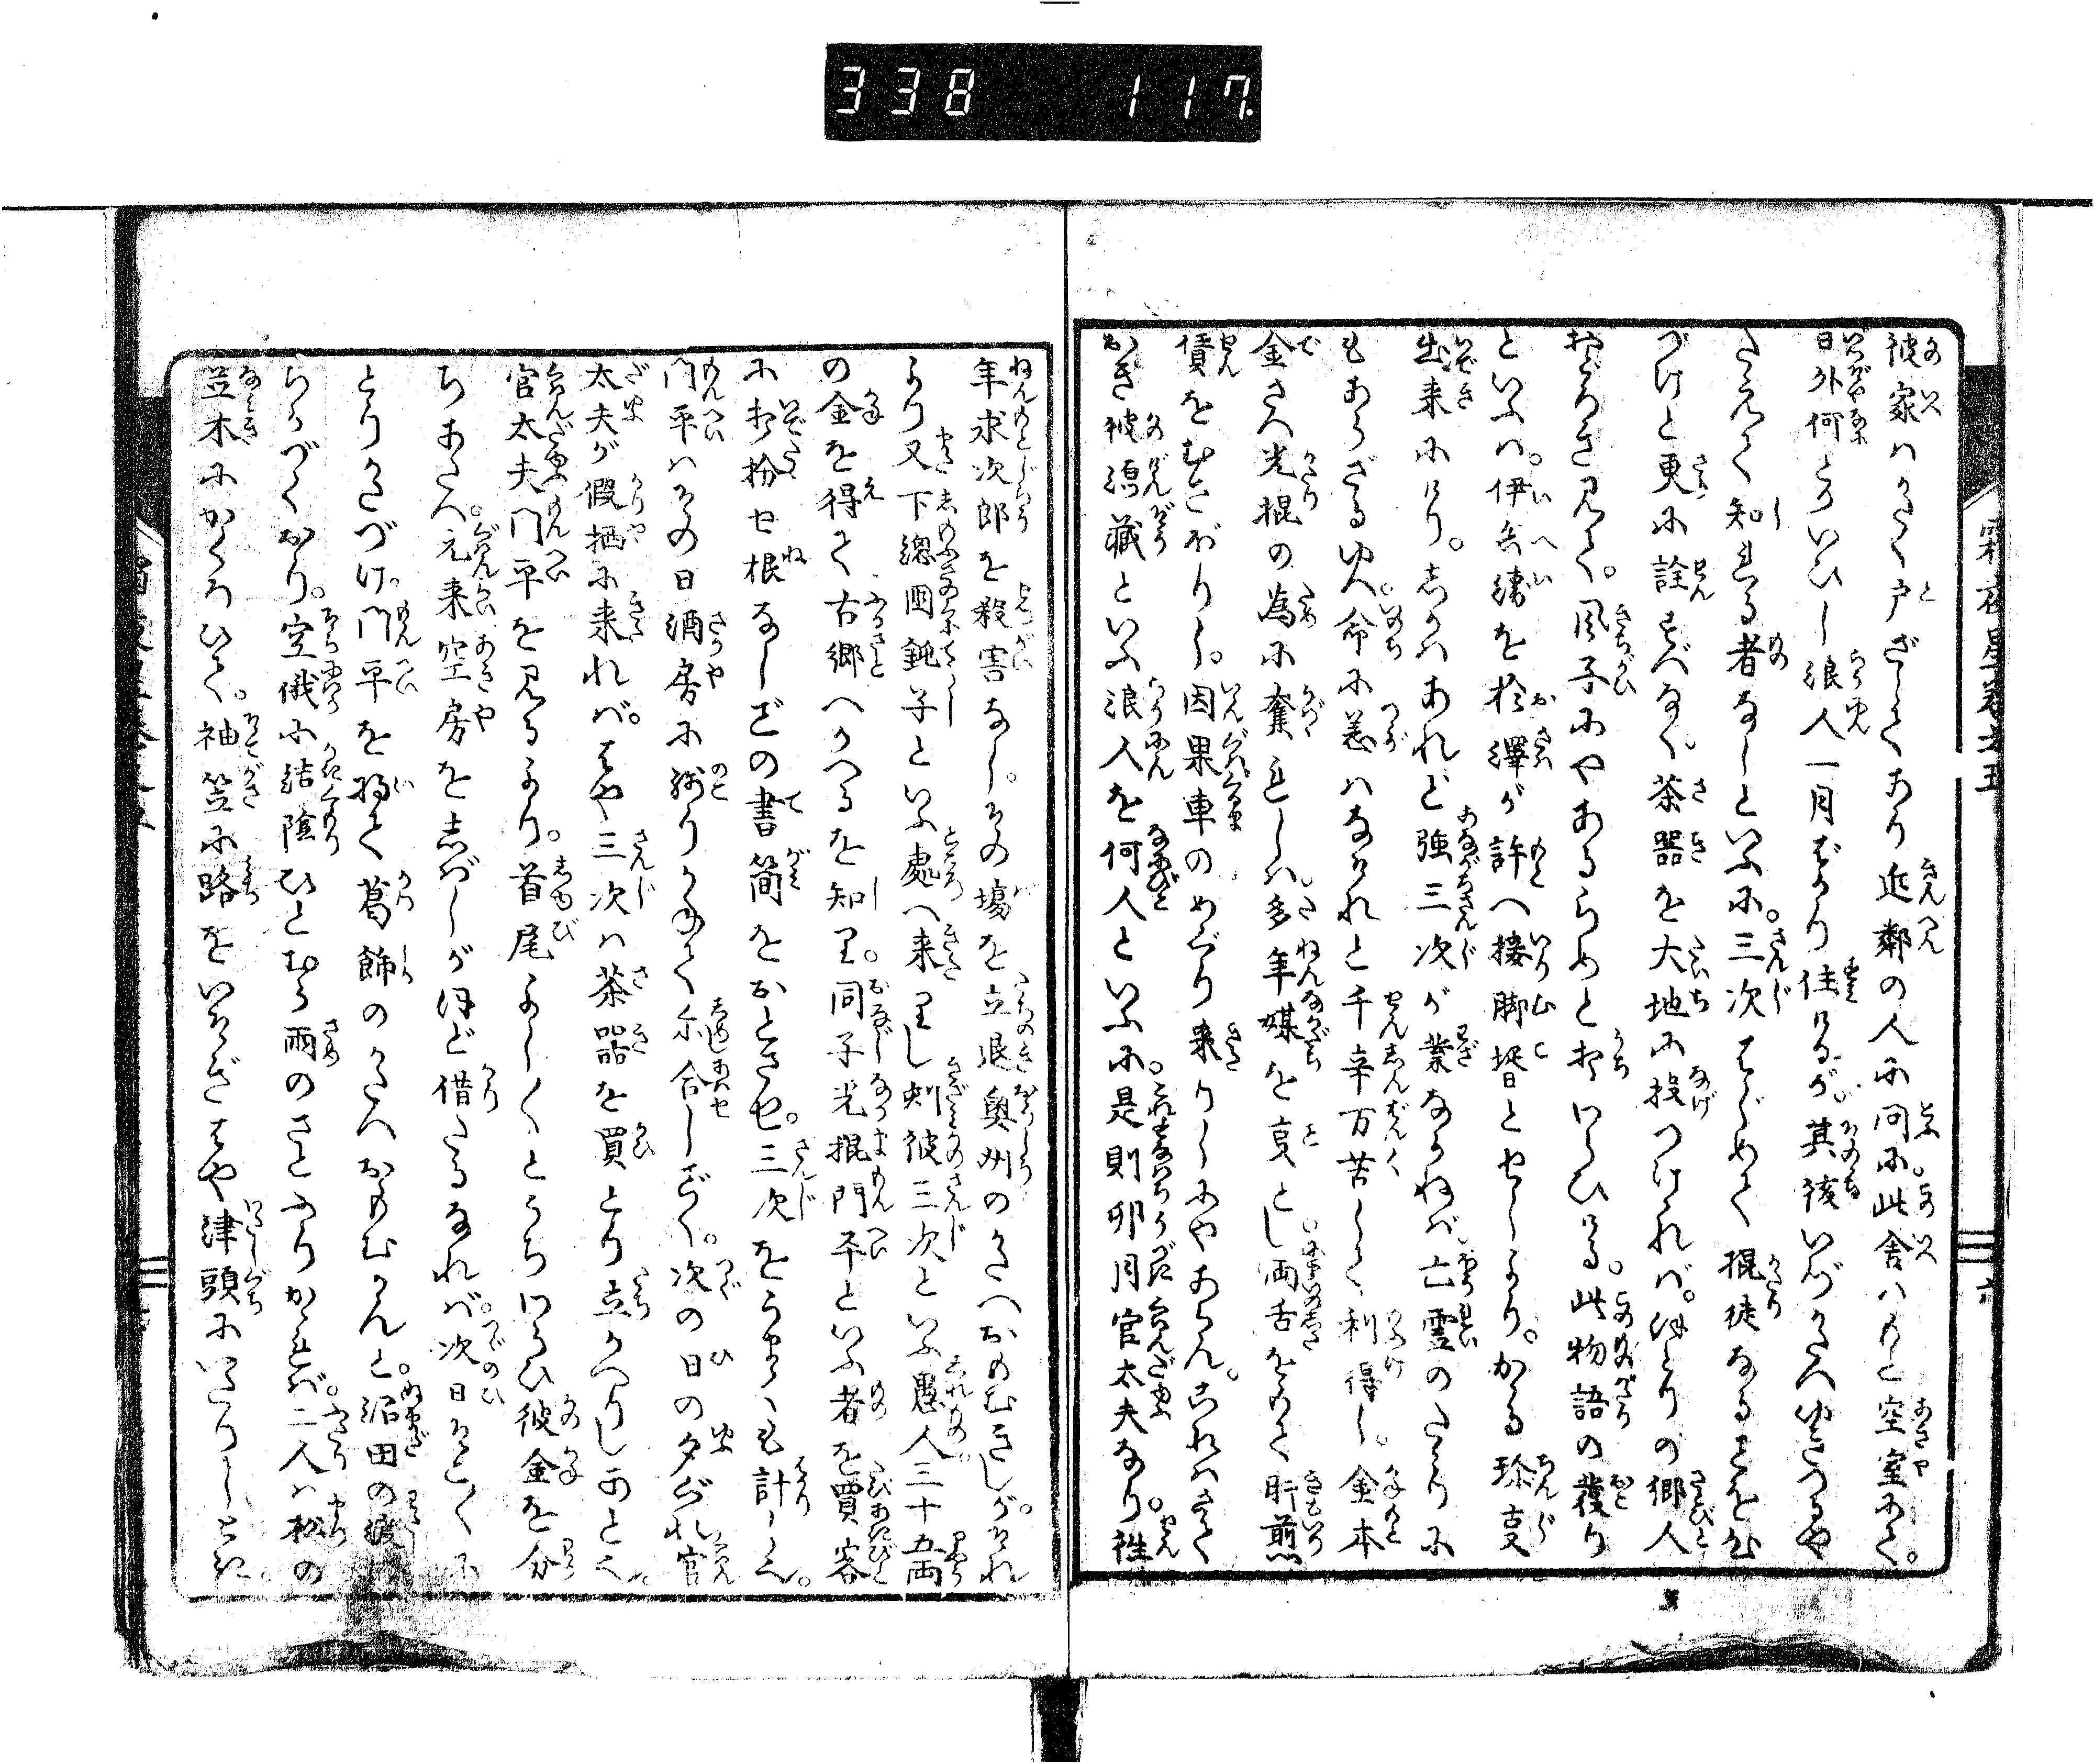 338 117
霜夜星巻之五
彼家ハかたく戸ざしてあり近鄰の人に问に此舎ハもと空室にて。
日外何とかいひし浪人一月ばかり住けるが其後いづかたへゆきつるや
たえて知れる者なしといふに。三次はじめて掍徒なることをむ
づけと更に詮すべなく茶器を大地に投つけれバ。ほとりの郷人
おどろき見て。風子にやあるらめと打わらひける。此物語の発り
といふハ。伊兵衛を於澤が許へ接脚壻とせしより。かゝる珍支
出来にけり。しかハあれど強三次が業ならねバ亡霊のたゝりに
もあらざるゆへ。命に恙ハなけれと千辛万苦して利得し。金本
金さへ光掍の為に奪れしハ。多年媒を㕝とし両舌をもて肝煎
賃をむさぼりし。因果車のめぐり来りしにやあらん。これハさて
おき彼源藏といふ浪人を何人といふに。是則卯月官太夫なり。往
年求次郎を殺害なし。その塲を立退奥州のかたへおもむきしが。それ
より又下總国銚子といふ處へ来りし刻彼三次といふ愚人三十五両
の金を得て古郷へかへるを知り。同子光掍門平といふ者を賈客
に打扮せ根なしごの書簡をおとさせ。三次をうまくも計しハ。
門平ハその日酒房に残りかねて示合しごく。次の日の夕ぐれ官
太夫が假栖に来れバ。はや三次ハ茶器を買とり立かへりしあとへ。
官太夫門平を見るより。首尾よし〳〵とうちわらひ彼金を分
ちあたへ。元来空房をしばしがほど借たるなれバ。次日そこ〳〵に
とりかたづけ。門平を将て葛飾のかたへおもむかんと。沼田の渡に
ちかづくおり。空俄に結陰ひとむら雨のさとふりかゝれバ。二人ハ松の
並木にかくろひて。袖笠に路をいそぎはや津頭にいたりしとき。